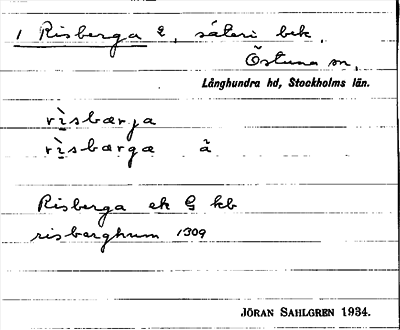 1 Risberga E, säteri bek.
Östuna sn,
Långhundra hd, Stockholms län.
rìsbærja
rìsbærgæ ä
Risberga ek G kb
risbærghum 1309
JÖRAN SAHLGREN 1934.